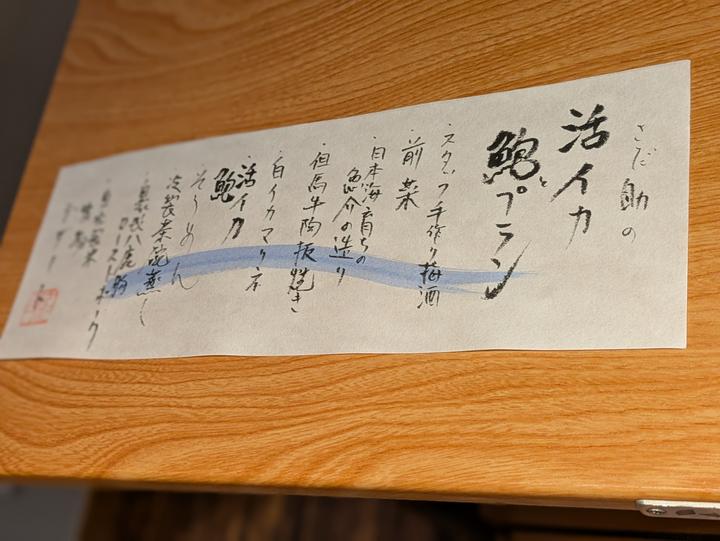 さだ助の
活イカ
鮑プラン
・スタッフ手作り梅酒
・前菜
・日本海育ちの
魚介の造り
・但馬牛陶板焼き
・白イカマリネ
・活イカ
鮑
・そうめん
冷製茶碗蒸し
・八鹿豚
ローストポーク